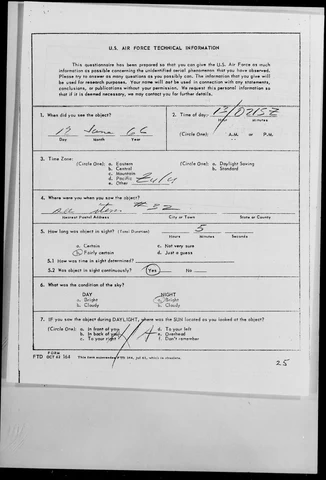 U.S. AIR FORCE TECHNICAL INFORMATION
This questionnaire has been prepared so that you can give the U.S. Air Force as much
information as possible concerning the unidentified aerial phenomenon that you have observed.
Please try to answer as many questions as you possibly can. The information that you give will
be used for research purposes. Your name will not be used in connection with any statements,
conclusions, or publications without your permission. We request this personal information so
that if it is deemed necessary, we may contact you for further details.
1. When did you see the object?
17 June 66
Day Month Year
2. Time of day: 17/0215Z
Hour Minutes
(Circle One): A.M. or P.M.
3. Time Zone:
(Circle One): a. Eastern
b. Central
c. Mountain
d. Pacific
e. Other Zulu
(Circle One): a. Daylight Saving
b. Standard
4. Where were you when you saw the object?
see item # 32
Nearest Postal Address City or Town State or County
5. How long was object in sight? (Total Duration) 5
Hours Minutes Seconds
a. Certain
b. Fairly certain
c. Not very sure
d. Just a guess
5.1 How was time in sight determined?
5.2 Was object in sight continuously? Yes No
6. What was the condition of the sky?
DAY
a. Bright
b. Cloudy
NIGHT
a. Bright
b. Cloudy
7. IF you saw the object during DAYLIGHT, where was the SUN located as you looked at the object?
(Circle One): a. In front of you
b. In back of you
c. To your right
N/A
d. To your left
e. Overhead
f. Don't remember
FORM
FTD OCT 62 164 This form supersedes FTD 164, Jul 61, which is obsolete.
25